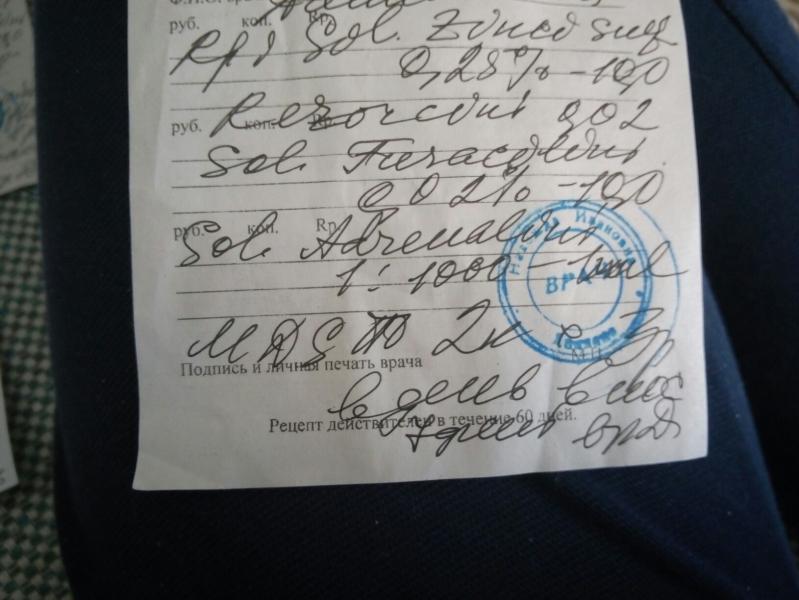 руб. коп. Rp.
Rp: Sol. Zinci sulf
0,25% - 10,0
руб. коп. Rp.
Rezorcini 0,02
Sol. Furacilini
0,02% - 10,0
руб. коп. Rp.
Sol. Adrenalini
1:1000 - 1 ml
MDS по 2к 3р
М.П.
Подпись и личная печать врача
в день в нос
Рецепт действителен в течение 60 дней.
7 дней
Ивановна
ВРАЧ